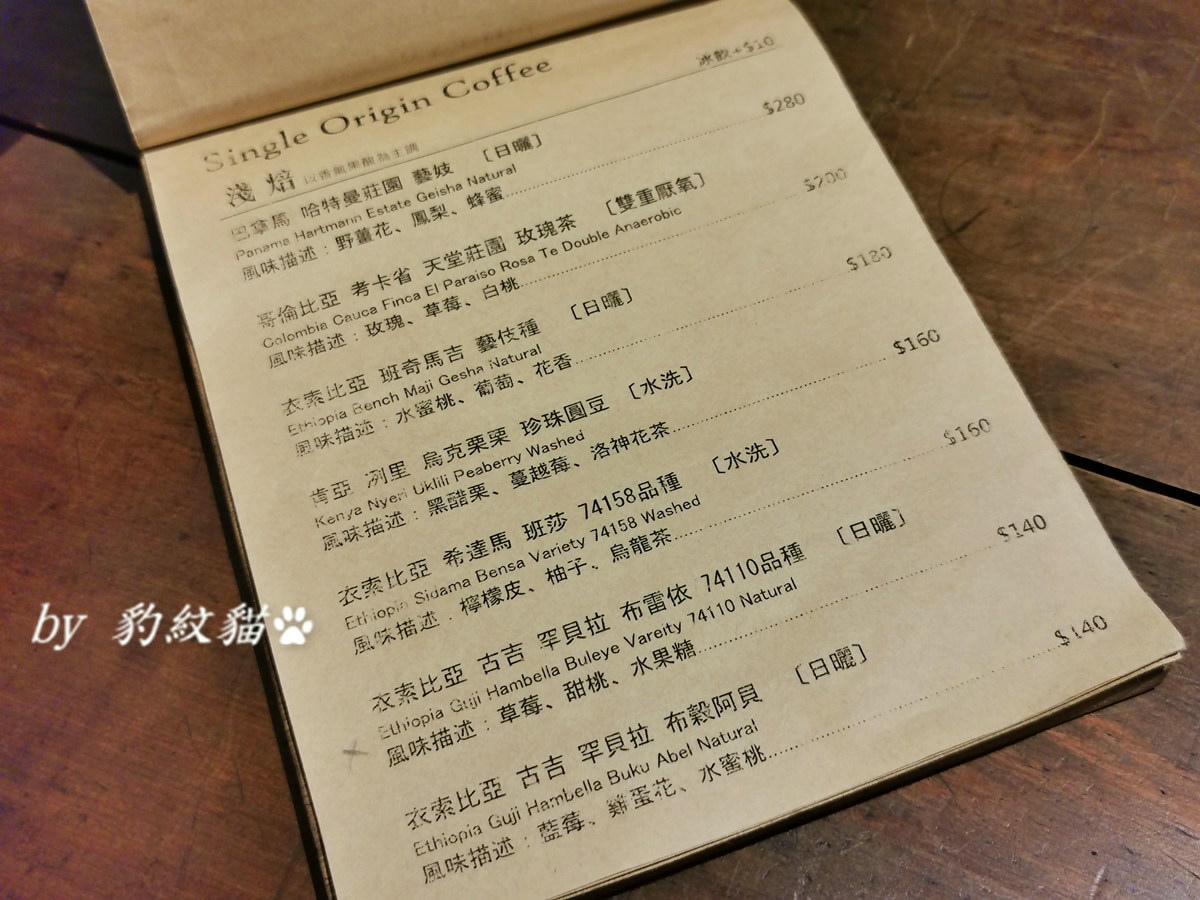 Single Origin Coffee
冰飲+$10
淺焙 以香氣果酸為主調
巴拿馬 哈特曼莊園 藝妓 〔日曬〕
Panama Hartmann Estate Geisha Natural
風味描述：野薑花、鳳梨、蜂蜜 $280
哥倫比亞 考卡省 天堂莊園 玫瑰茶 〔雙重厭氧〕
Colombia Cauca Finca El Paraiso Rosa Te Double Anaerobic
風味描述：玫瑰、草莓、白桃 $200
衣索比亞 班奇馬吉 藝伎種 〔日曬〕
Ethiopia Bench Maji Gesha Natural
風味描述：水蜜桃、葡萄、花香 $180
肯亞 涮里 烏克栗栗 珍珠圓豆 〔水洗〕
Kenya Nyeri Uklili Peaberry Washed
風味描述：黑醋栗、蔓越莓、洛神花茶 $160
衣索比亞 希達馬 班莎 74158品種 〔水洗〕
Ethiopia Sidama Bensa Variety 74158 Washed
風味描述：檸檬皮、柚子、烏龍茶 $160
衣索比亞 古吉 罕貝拉 布雷依 74110品種 〔日曬〕
Ethiopia Guji Hambella Buleye Vareity 74110 Natural
風味描述：草莓、甜桃、水果糖 $140
衣索比亞 古吉 罕貝拉 布穀阿貝 〔日曬〕
Ethiopia Guji Hambella Buku Abel Natural
風味描述：藍莓、雞蛋花、水蜜桃 $140
by 豹紋貓